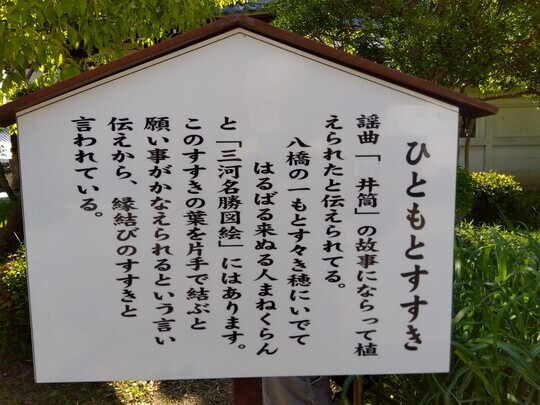 ひともとすすき
謡曲「 井筒」の故事にならって植
えられたと伝えられてる。
八橋の一もとすゝき穂にいでて
はるばる来ぬる人まねくらん
と「三河名勝図絵」にはあります。
このすすきの葉を片手で結ぶと
願い事がかなえられるという言い
伝えから、縁結びのすすきと
言われている。